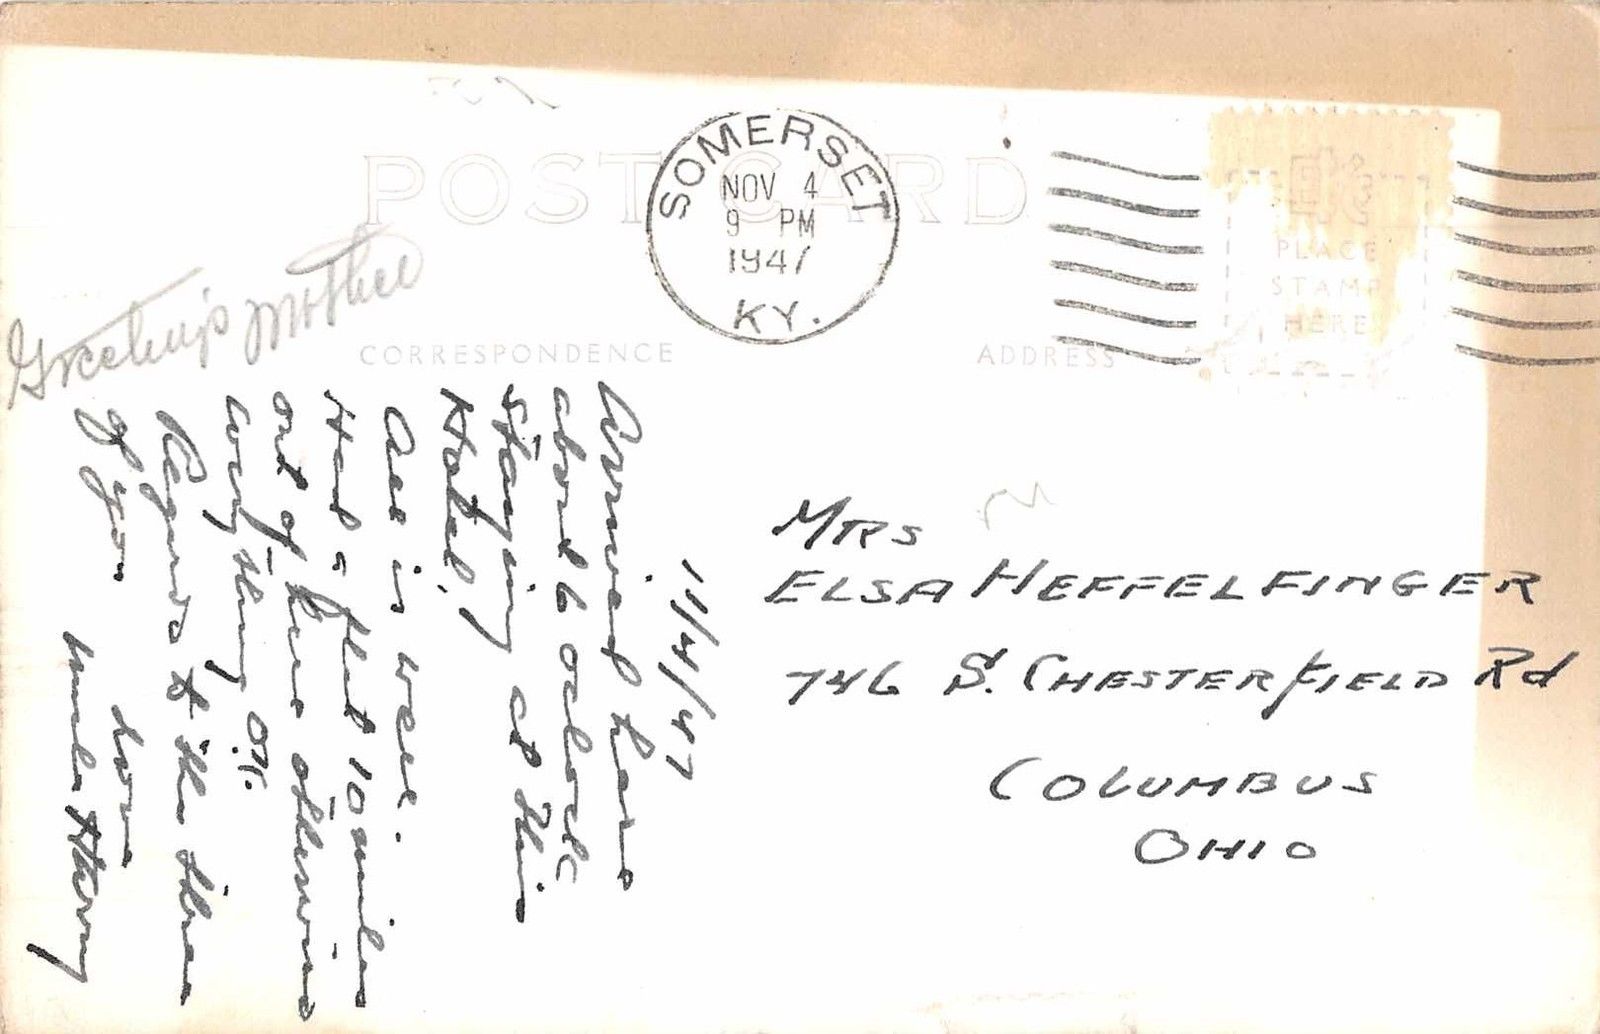 POST CARD
SOMERSET
NOV 4
9 PM
1947
KY.
PLACE
STAMP
HERE
Greetings Mother
CORRESPONDENCE
ADDRESS
11/4/47
Arrived here
about 6 oclock
staying at this
Hotel,
All is well.
Had a flat 10 miles
out of here otherwise
everything OK.
Regards to the three
of you
Love
Uncle Harry
MRS
ELSA HEFFELFINGER
746 S. CHESTERFIELD Rd
COLUMBUS
OHIO